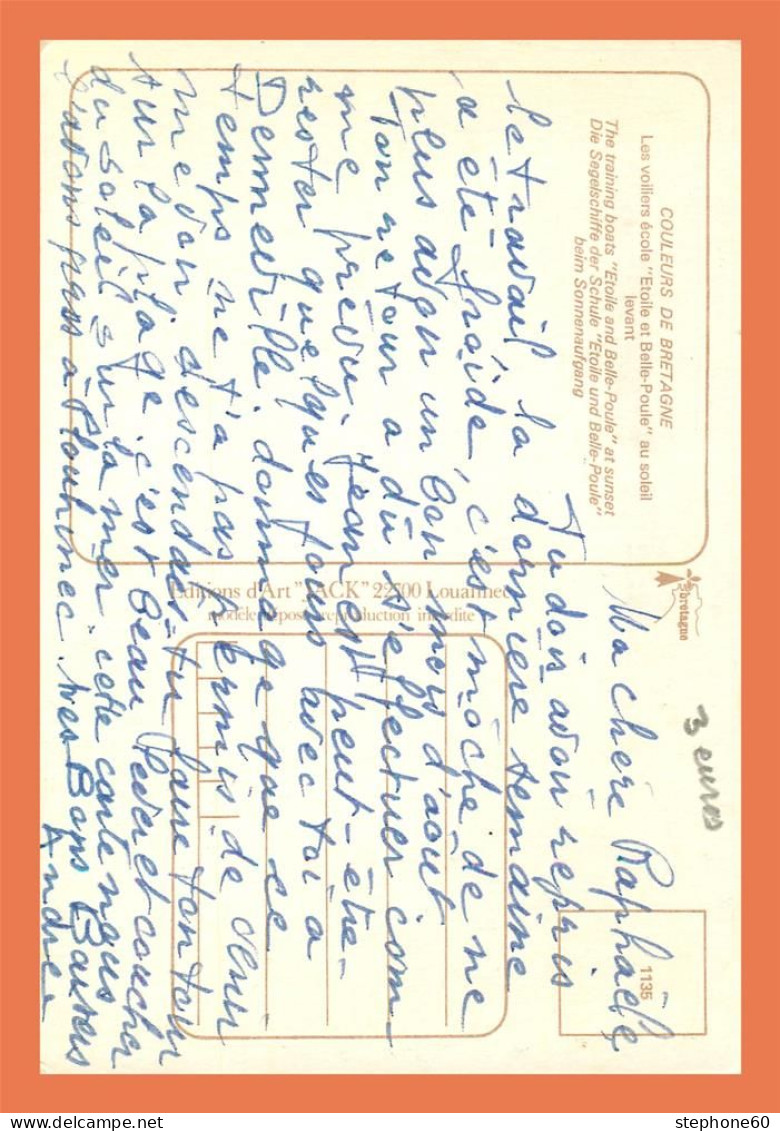 COULEURS DE BRETAGNE
Les voiliers école "Etoile et Belle-Poule" au soleil
levant
The training boats "Etoile and Belle-Poule" at sunset
Die Segelschiffe der Schule "Etoile und Belle-Poule"
beim Sonnenaufgang
bretagne
Editions d'Art "JACK" 22700 Louannec
modèle déposé reproduction interdite
1135
3 euros
Ma chère Raphaëlle
Tu dois avoir repris
le travail la dernière semaine
a été froide, c'est môche de ne
plus avoir un bon mois d'août
Ton retour a dû s'effectuer com-
me prévu. Jean est peut-être
rester quelques jours avec toi a
Denneville. dommage que ce
temps ne t'a pas permis de venir
me voir, descendais-tu faire ton tour
sur la plage, c'est beau lever et coucher
du soleil sur la mer. cette carte nous
l'avons pris a Plouhinec. Mes Bons Baisers
Andrée
stephone60